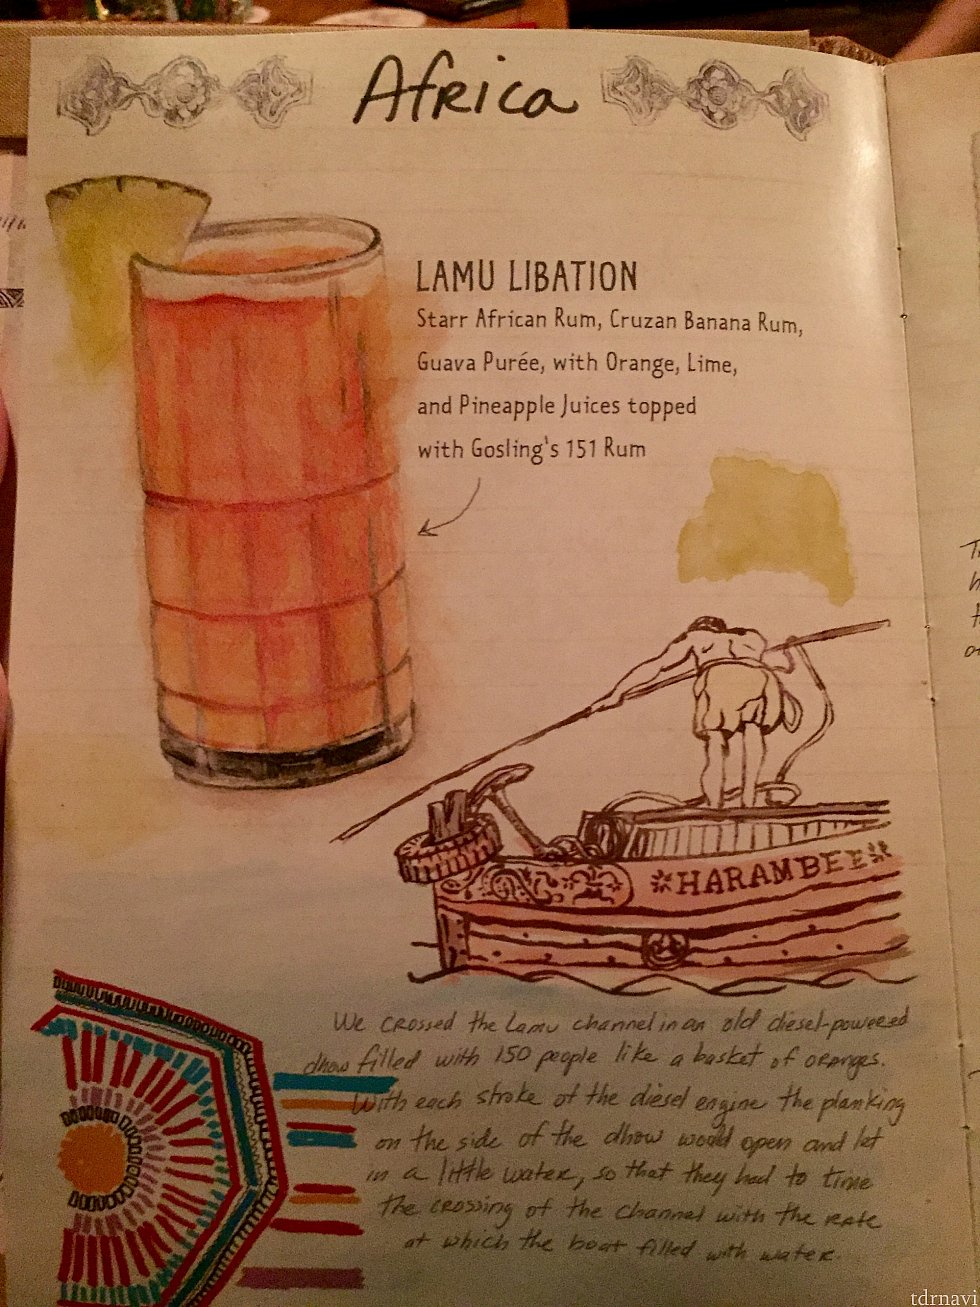 Africa
LAMU LIBATION
Starr African Rum, Cruzan Banana Rum,
Guava Purée, with Orange, Lime,
and Pineapple Juices topped
with Gosling's 151 Rum
HARAMBEE
We crossed the Lamu channel in an old diesel-powered
dhow filled with 150 people like a basket of oranges.
With each stroke of the diesel engine the planking
on the side of the dhow would open and let
in a little water, so that they had to time
the crossing of the channel with the rate
at which the boat filled with water.
tdrnavi